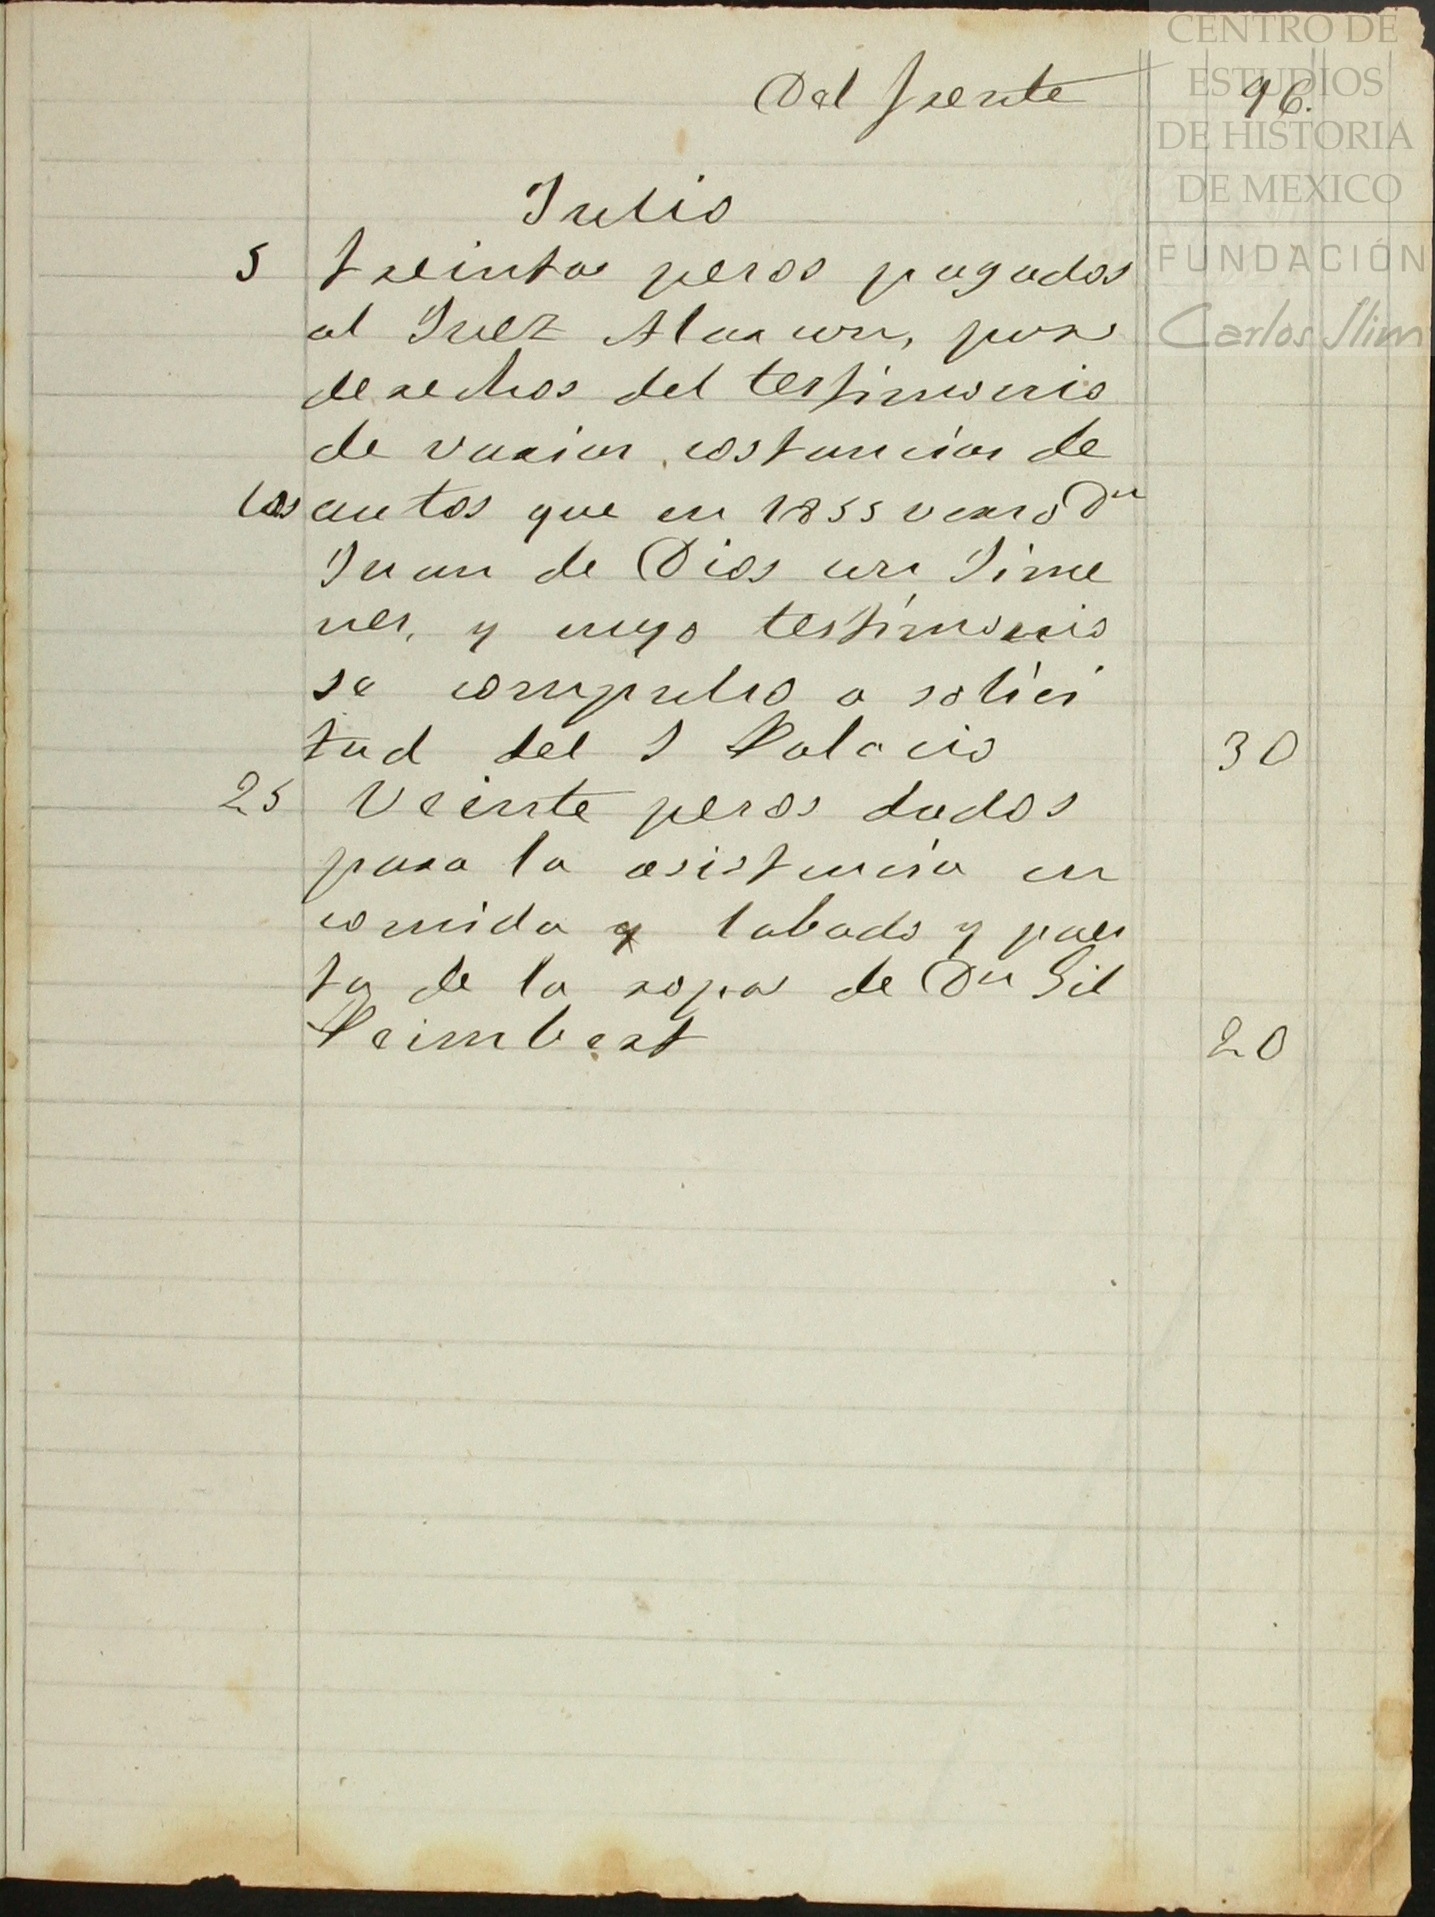 CENTRO DE
ESTUDIOS
DE HISTORIA
DE MEXICO
FUNDACIÓN
Carlos Slim
Del frente 96.
Julio
5 treinta pesos pagados
al Juez Alarcon, por
derechos del testimonio
de varias costancias de
los autos que en 1855 Dn
Juan de Dios con Jime
nes, y cuyo testimonio
se compulso a solici
tud del S Palacio 30
25 Veinte pesos dados
para la asistencia en
comida y labado y
de la ropa de Dn Gil
Peimbert 20